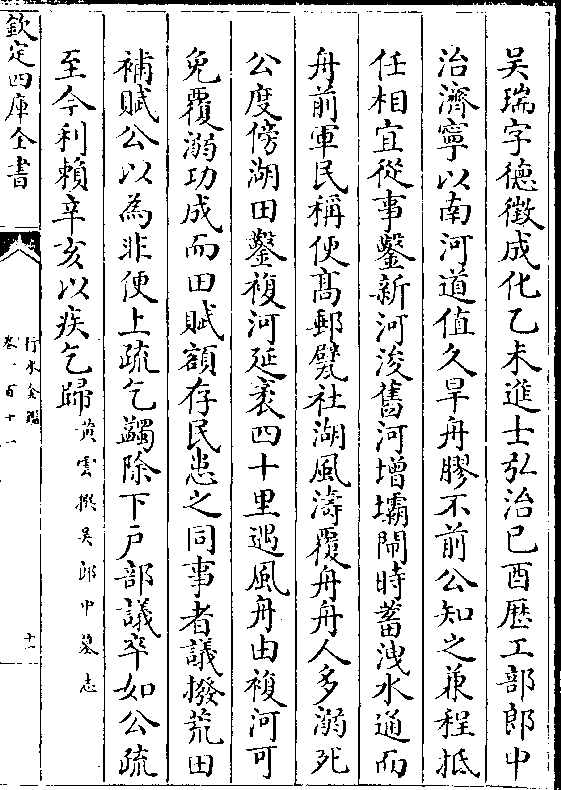 吳瑞字德徵成化乙未進士弘治己酉歴工部郎中
治濟寧以南河道值久旱舟膠不前公知之兼程抵
任相宜從事鑿新河浚舊河增壩閘時蓄洩水通而
舟前軍民稱便髙郵甓社湖風濤覆舟舟人多溺死
公度傍湖田鑿複河延袤四十里遇風舟由複河可
免覆溺功成而田賦額存民患之同事者議撥荒田
補賦公以為非便上疏乞蠲除下戸部議卒如公疏
至今利頼辛亥以疾乞歸黄雲撰吳郎中墓志
欽定四庫全書
行水金鑑
卷一百十一
十一